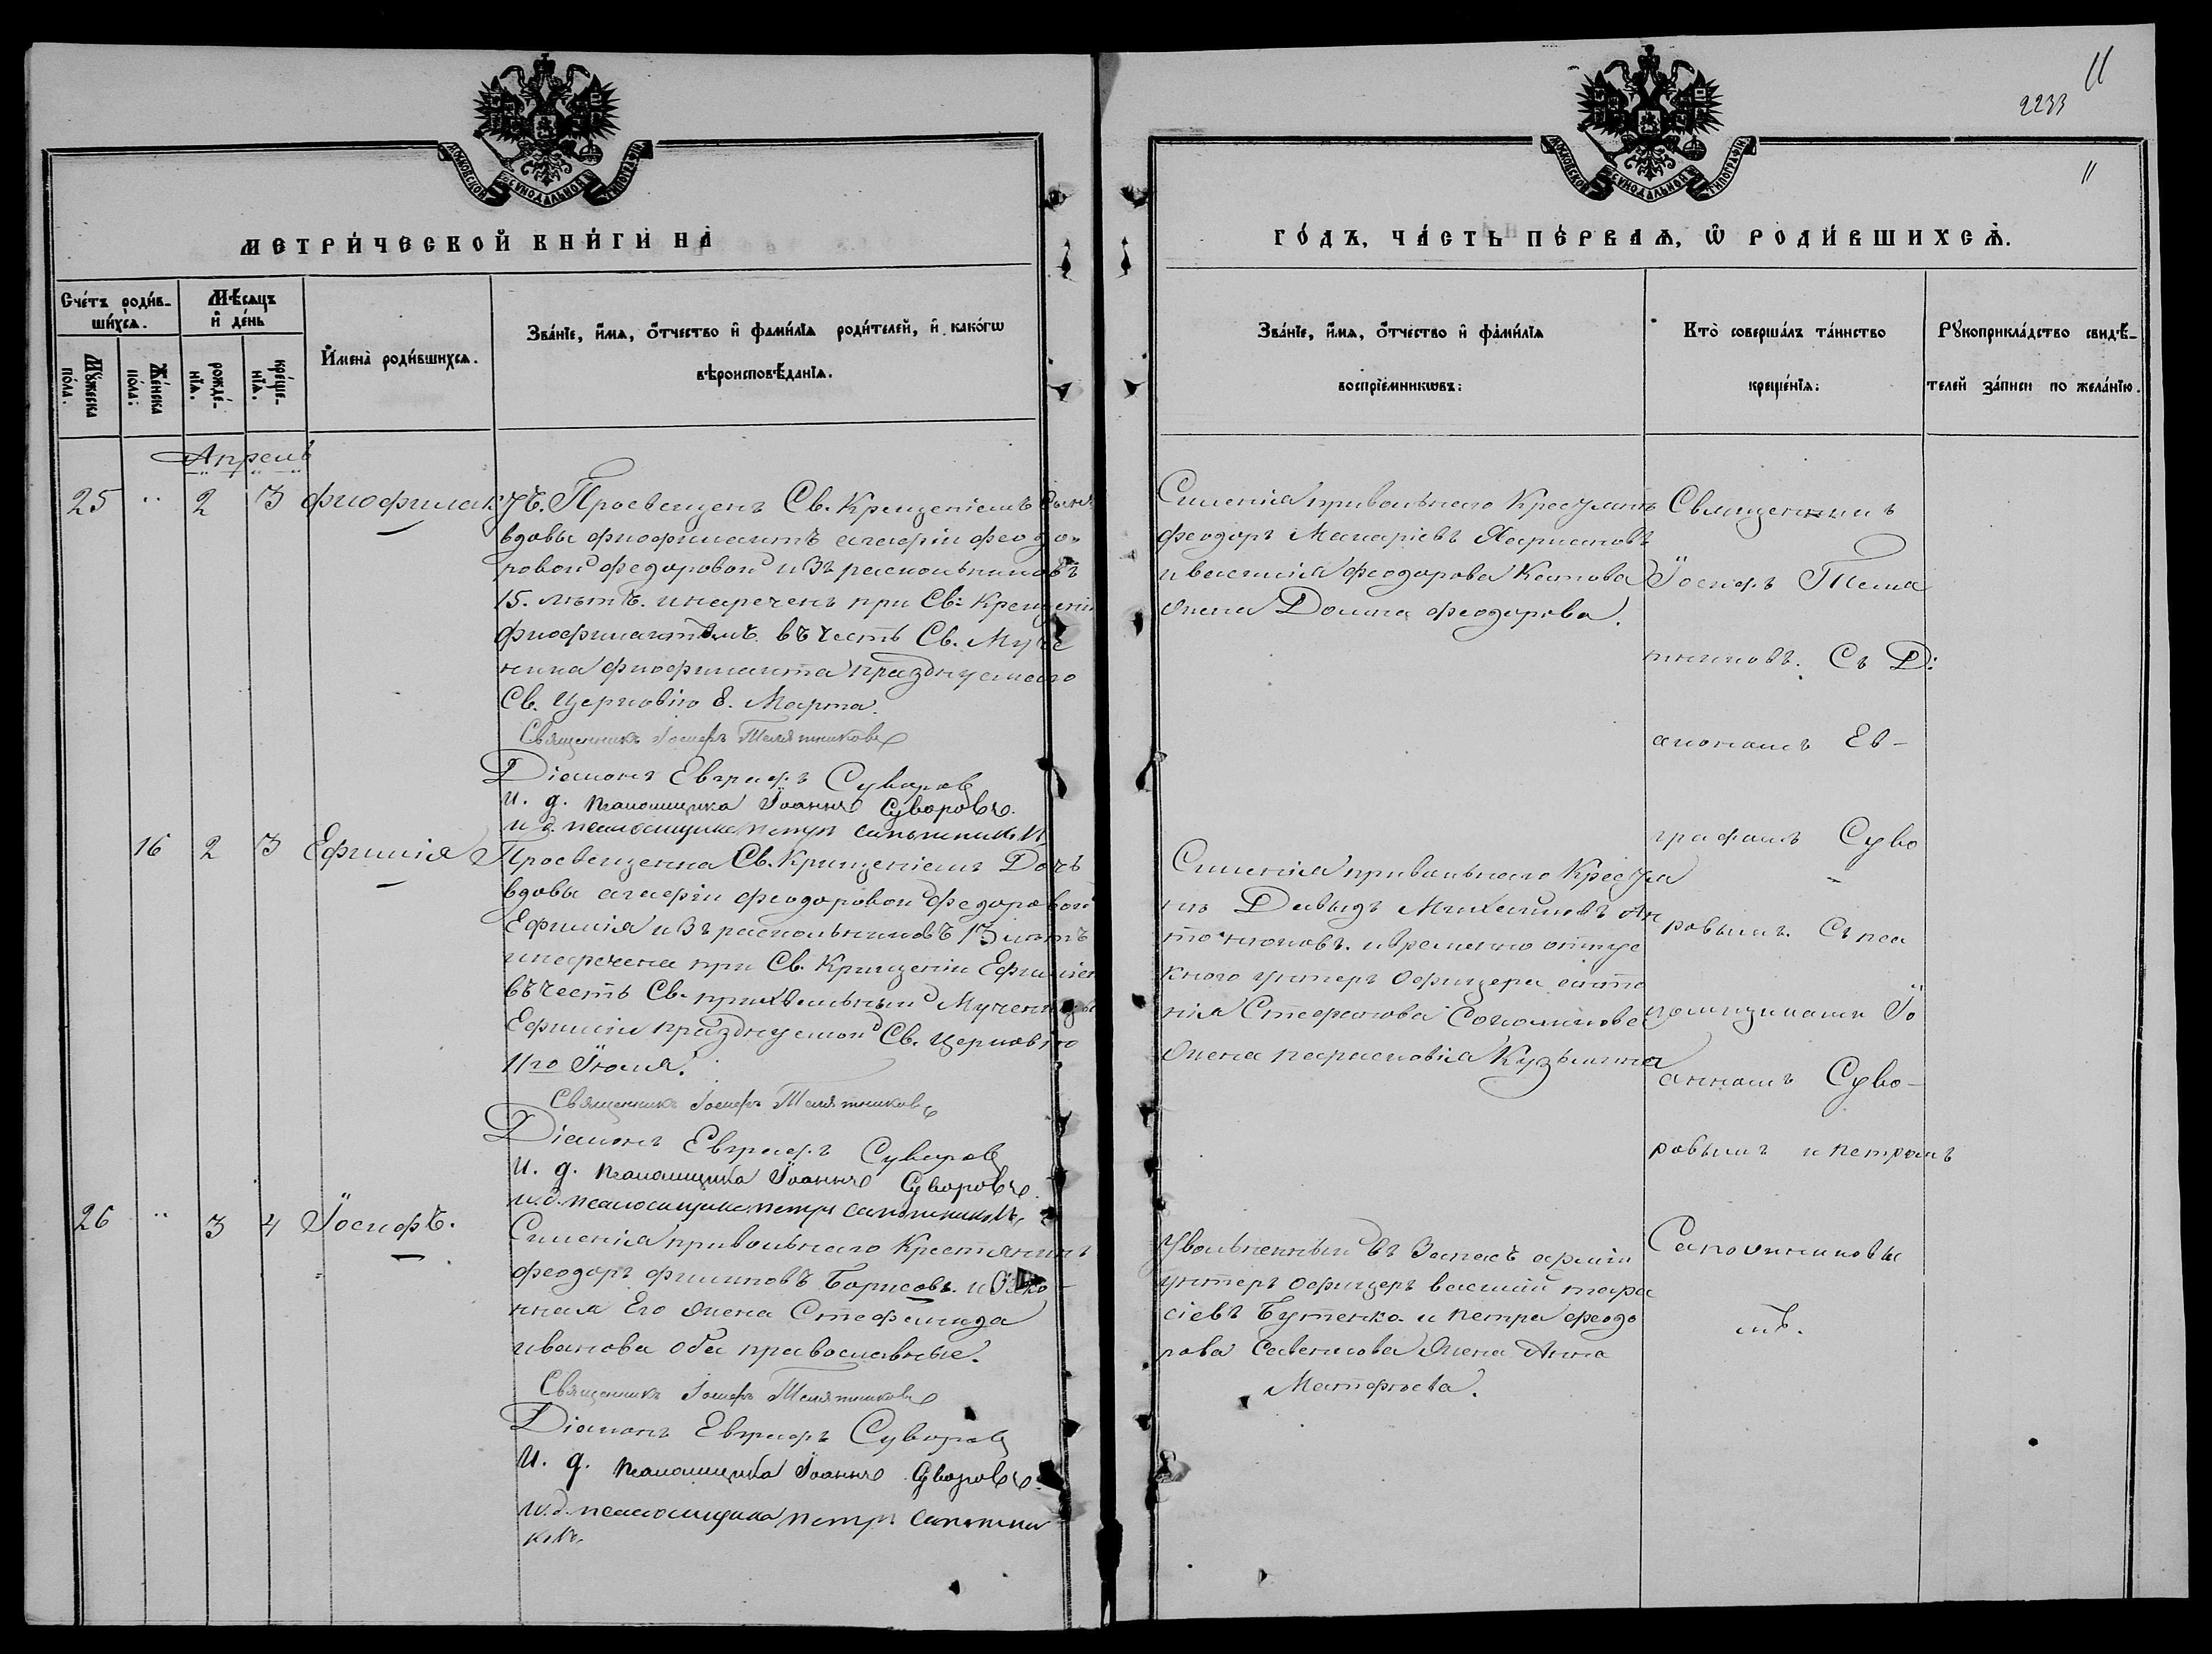 11
2233
11
МОСКОВСКОЙ СѴНОДАЛЬНОЙ ТИПОГРАФІИ
МОСКОВСКОЙ СѴНОДАЛЬНОЙ ТИПОГРАФІИ
МЕТРИ́ЧЕСКОЙ КНИ́ГИ НА̀
ГО́ДЪ, ЧА́СТЬ ПЕ́РВАѦ, Ѡ҆ РОДИ́ВШИХСѦ.
Сче́тъ роди́в-
ши́хсѧ.
Мѣ́сѧцъ
и҆ де́нь
Мꙋ́жеска
по́ла.
Же́нска
по́ла:
рожде́-
нїѧ.
креще́-
нїѧ.
И҆мена̀ роди́вшихсѧ.
Зва́нїе, и҆́мѧ, ѻ҆́тчество и҆ фами́лїѧ роди́телей, и҆ како́гѡ
вѣроисповѣ́данїѧ.
Зва́нїе, и҆́мѧ, ѻ҆́тчество и҆ фами́лїѧ
воспрїе́мникѡвъ:
Кто̀ соверша́лъ та́инство
креще́нїѧ:
Рꙋкоприкла́дство свидѣ́-
телей за́писи по жела́нїю.
Апрель
25 " 2 3 Фиофилактъ. Просвещенъ Св. Крещеніемъ Сынъ
вдовы Агаѳіи Феодо-
ровой Федоровой изъ раскольниковъ
15. лѣтъ. инареченъ при Св: Крещеніи
Фиофилактомъ въ честь Св. Муче
ника Фиофилакта празднуемаго
Св. Церковію 8. Марта.
Священникъ Іосифъ Телятниковъ
Діаконъ Евграфъ Суворовъ
И. д. псаломщика Іоаннъ Суворовъ.
и. д. псаломщика петръ сапожниковъ
Селенія привольнаго Крестьянинъ
феодоръ Макаріевъ
и василія феодорова Жена Домна феодорова.
Священникъ
Іосифъ Теля
тниковъ. Съ Ді
акономъ Ев-
графомъ Суво
ровымъ. Съ пса
ломщиками Іо
анномъ Суво-
ровымъ и петромъ
Сапожниковы
мъ.
16 2 3 Ефимія Просвещенна Св. Крещеніемъ Дочь
вдовы агаѳіи феодоровой Федоровой
Ефимія изъ раскольниковъ 13 лѣтъ
инаречена при Св. Крещеніи Ефиміею
въ честь Св. прихвальныи Мученицы
Ефиміи празднуемой Св. Церковію
11го Іюля.
Священникъ Іосифъ Телятниковъ
Діаконъ Евграфъ Суворовъ
И. д. псаломщика Іоаннъ Суворовъ.
и. д. псаломщика петръ сапожниковъ
Селенія привольнаго Крестья
нъ Давыдъ Михаиловъ Ан
тонюковъ. и временно отпус
кного унтеръ Офицера анто
нія Стефанова
Жена парасковія Кузьмина
26 " 3 4 Іосифъ.
Селенія привольнаго Крестянинъ
феодоръ филиповъ Борисовъ. и Зако
нная Его Жена Стефанида
иванова оба православные.
Священникъ Іосифъ Телятниковъ
Діаконъ Евграфъ Суворовъ
И. д. псаломщика Іоаннъ Суворовъ.
и. д. псаломщика петръ сапожни
ковъ
Увольненный въ Запасъ арміи
унтеръ офицеръ василій тара
сіевъ Бутенко. и петра феодо
рова Савенкова Жена Анна
Матфѣева.